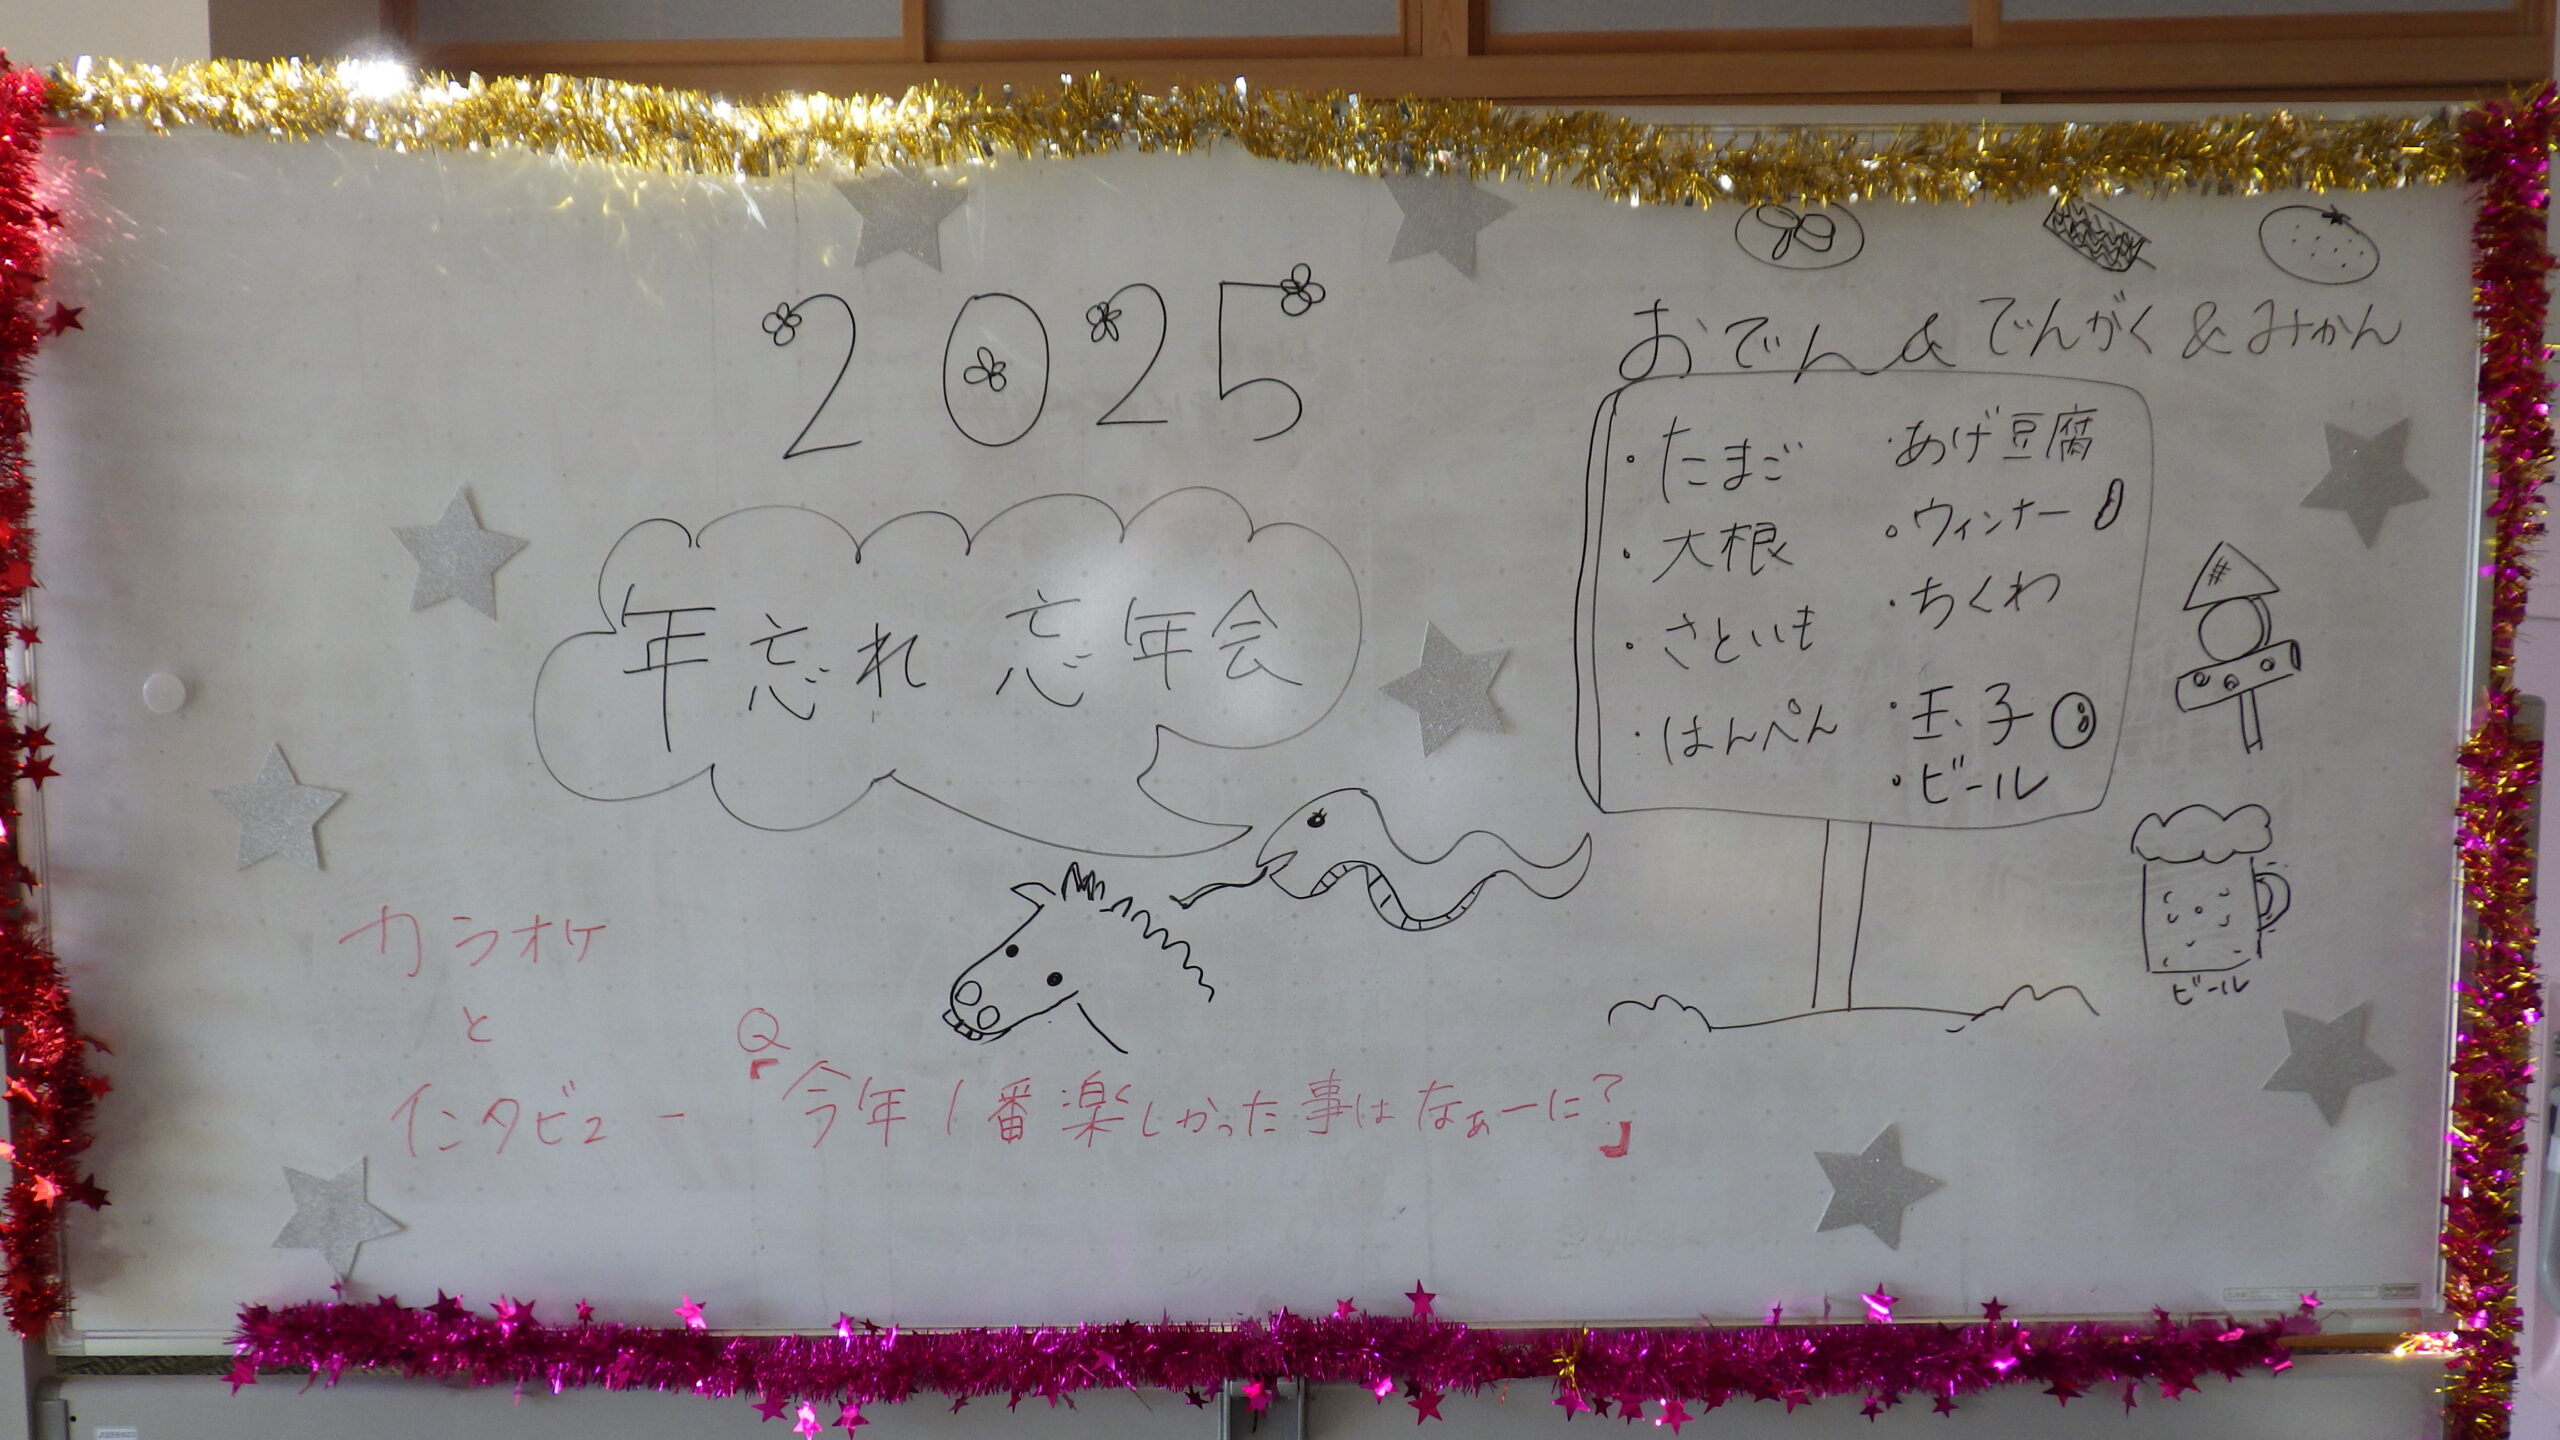 2025
年忘れ 忘年会
おでん & でんがく & みかん
・たまご
・大根
・さといも
・はんぺん
・あげ豆腐
・ウィンナー
・ちくわ
・玉子
・ビール
ビール
カラオケ
と
インタビュー
Q
「今年1番楽しかった事はなぁーに?」